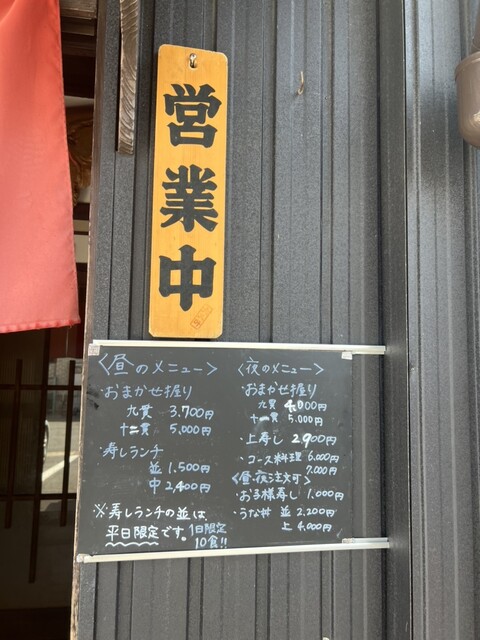 営業中
〈昼のメニュー〉
・おまかせ握り
九貫 3,700円
十二貫 5,000円
・寿しランチ
並 1,500円
中 2,400円
※寿しランチの並は
平日限定です。1日限定
10食!!
〈夜のメニュー〉
・おまかせ握り
九貫 4,000円
十一貫 5,000円
・上寿し 2,900円
・コース料理 6,000円
7,000円
〈昼・夜注文可〉
・お子様寿し 1,000円
・うな丼 並 2,200円
上 4,000円